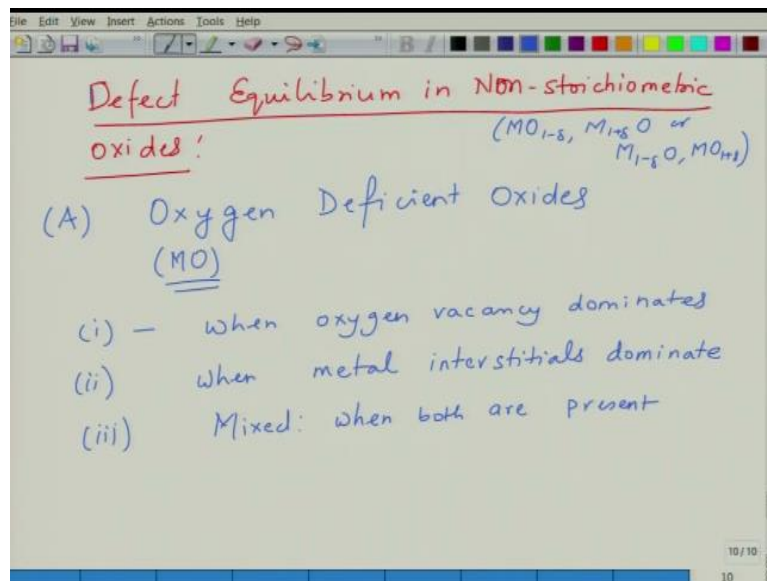 File Edit View Insert Actions Tools Help
B I
Defect Equilibrium in Non-stoichiometric
oxides:
(MO1-δ, M1+δO or
M1-δO, MO1+δ)
(A) Oxygen Deficient Oxides
(MO)
(i) — when oxygen vacancy dominates
(ii) when metal interstitials dominate
(iii) Mixed: when both are present
10/10
10